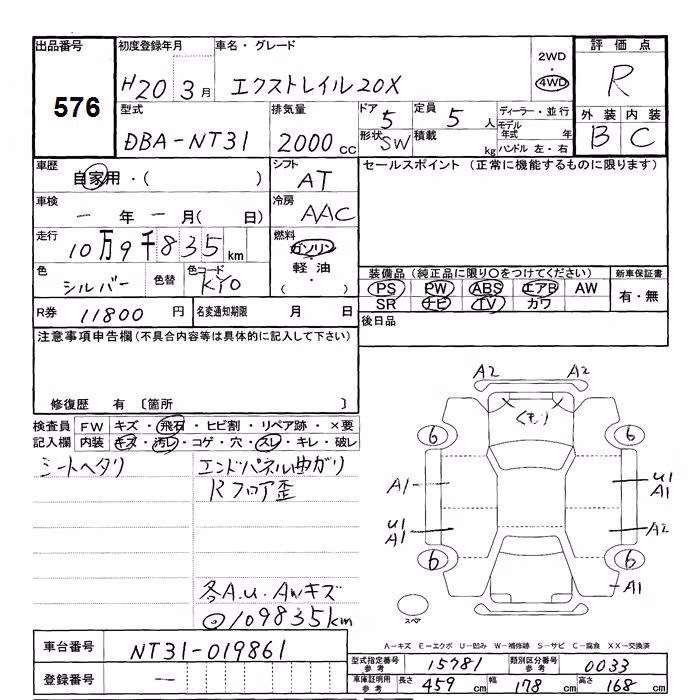 出品番号
576
初度登録年月
H20 3月
車名・グレード
エクストレイル20X
2WD
・
4WD
評価点
R
型式
DBA-NT31
排気量
2000cc
ドア 5
定員 5人
ディーラー・並行
形状 SW
積載 kg
モデル年式 年
ハンドル 左・右
外装 内装
B C
車歴
自家用・( )
シフト
AT
セールスポイント (正常に機能するものに限ります)
車検
一年一月( 日)
冷房
AAC
走行
10万9千835km
燃料
ガソリン
・
軽油
・
( )
色
シルバー
色替
色コード
KY0
装備品 (純正品に限り○をつけてください)
新車保証書
PS PW ABS エアB AW
SR ナビ TV カワ
有・無
R券 11800円
名変通知期限 月 日
後日品
注意事項申告欄(不具合内容等は具体的に記入して下さい)
修復歴 有 〔箇所 〕
検査員 FW キズ・飛石・ヒビ割・リペア跡・×要
記入欄 内装 キズ・汚レ・コゲ・穴・スレ・キレ・破レ
シートヘタリ
エンドパネル曲がり
Rフロア歪
各A.U.Awキズ
◎109835km
A2 A2
くもり
6 6
A1
U1
A1
U1
A1
A2
6 6
A1
スペア
A-キズ E-エクボ U-凹み W-補修跡 S-サビ C-腐食 XX-交換済
車台番号 NT31-019861
登録番号 一
型式指定番号 参考 15781
類別区分番号 参考 0033
車庫証明用 参考 長さ 459cm 幅 178cm 高さ 168cm